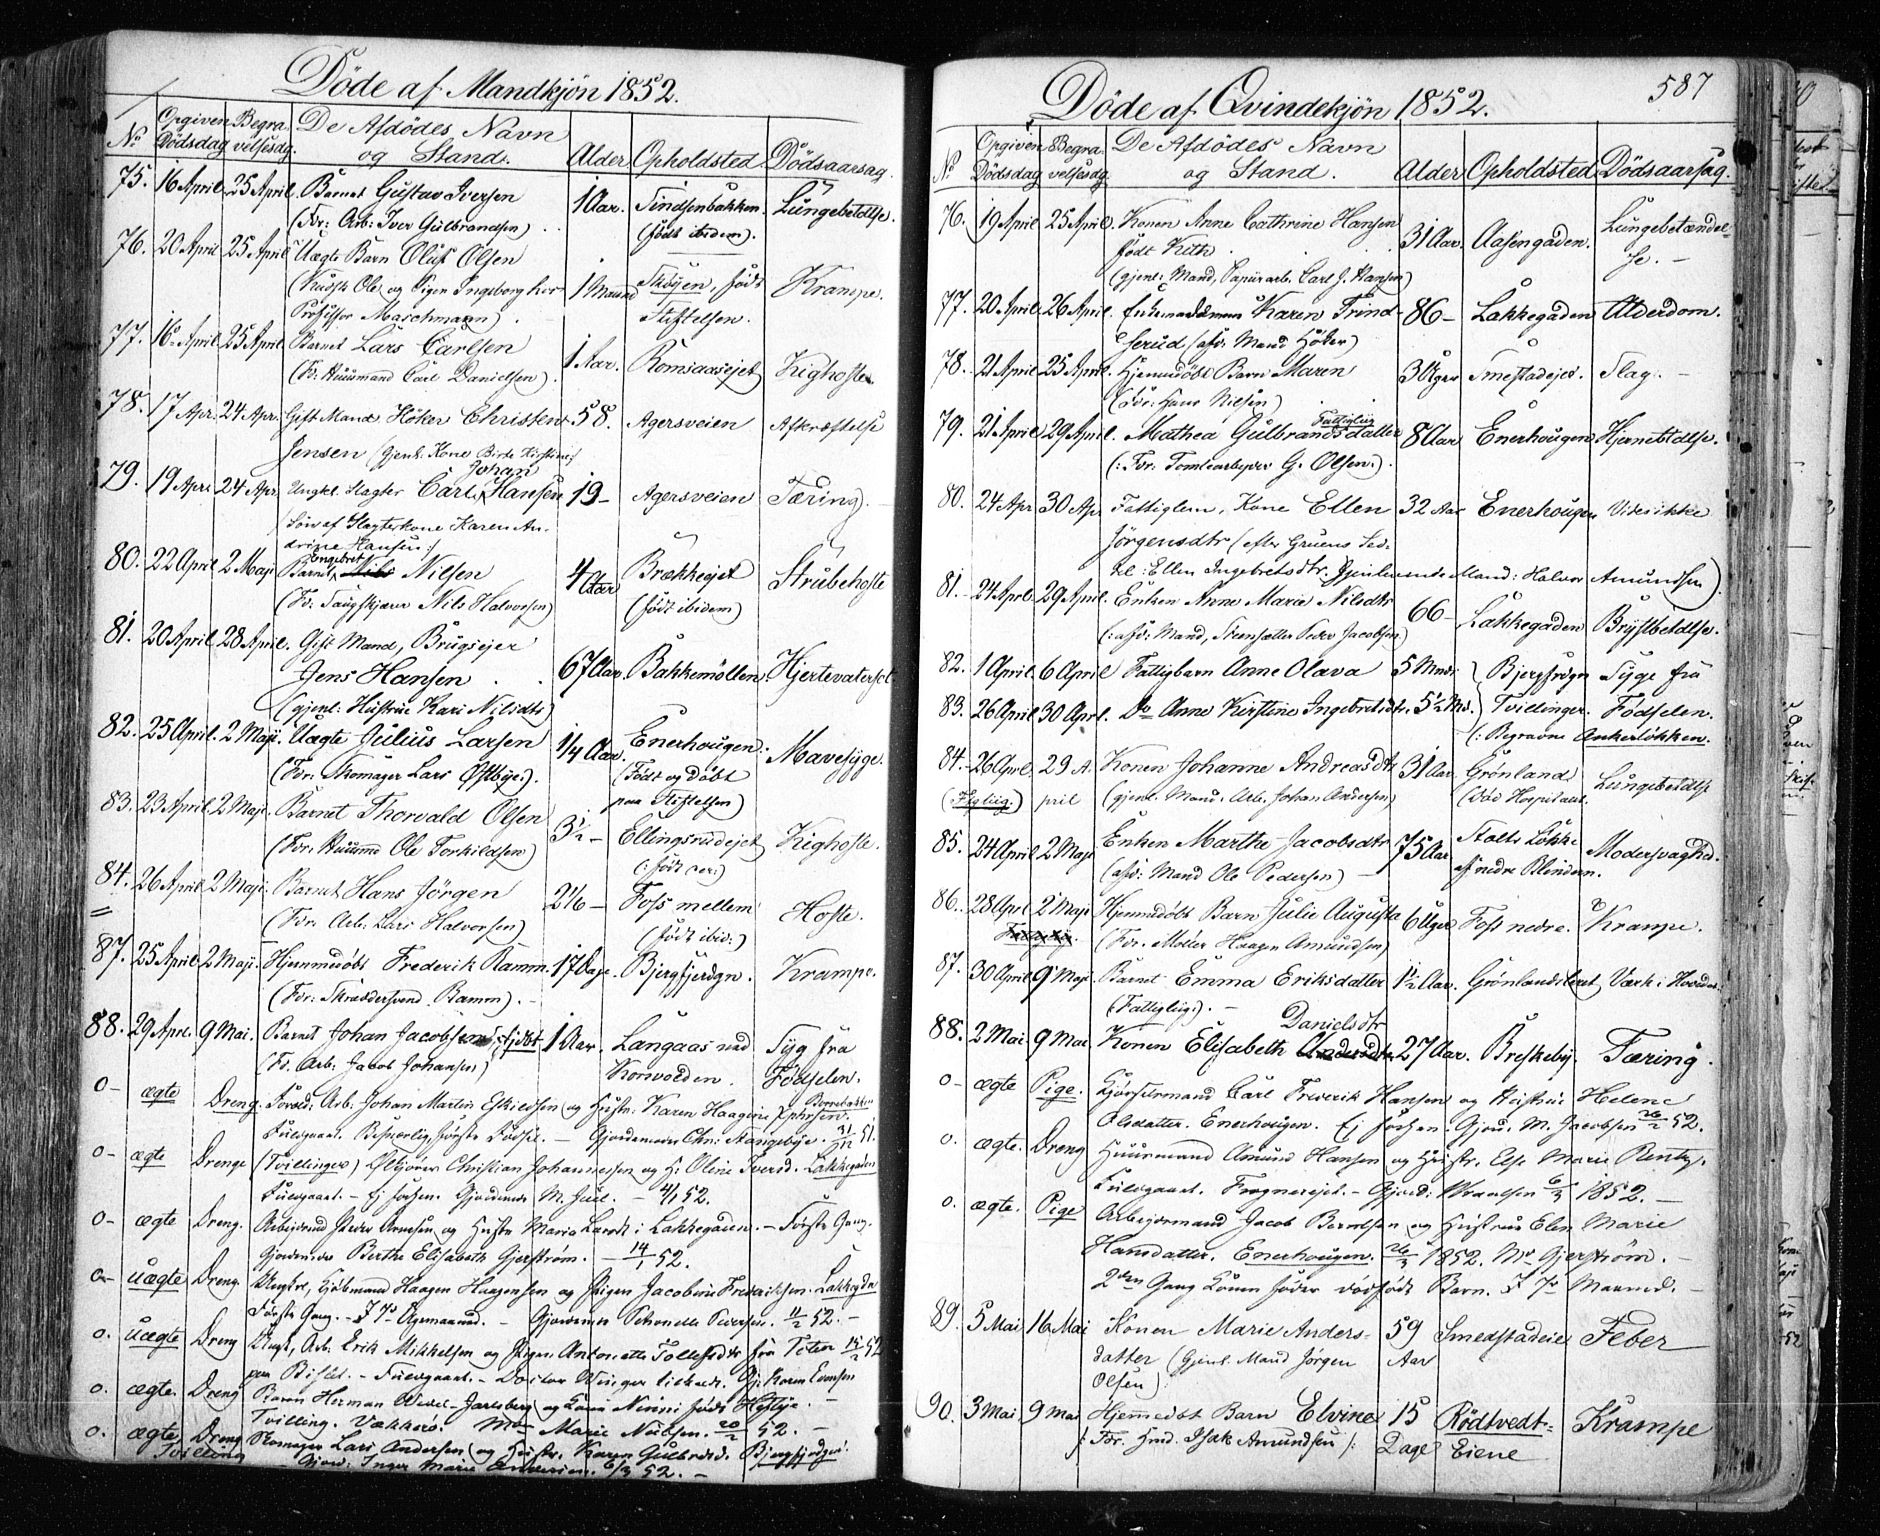 Döde af Mandkjön 1852.
No Opgiven Dödsdag Begravelsesdg. De Afdödes Navn og Stand. Alder Opholdsted Dödsaarsag.
75. 16 April 25 April. Barnet Gustav Iversen 1 Aar. Lungebetdlse.
(For: Arb: Iver Gulbrandsen) (født ibidem).
76. 20 April 25 April Uægte Barn Oluf Olsen
(Kudsk Ole og Pigen Ingeborg hos 1 Maaned Skøyen, født Krampe.
Professor Maschmann) Stiftelsen.
77. 16 April 25 April Barnet Lars Carlsen 1 Aar. Romsaasejet Kighoste.
(Fr: Huusmand Carl Danielsen)
78. 17 Apr. 24 Apr. Gift Mand Höker Christen 58. Agersveien Afkræftelse
Jensen (gjenl. Kone Birte Kirstine)
79. 19 Apri 24 Apr. Ungkl. Slagter Carl Johan Hansen 19 - Agersveien Tæring.
(Søn af Slagterkone Karen An-
drine Hansen)
80. 22 April 2 Maji Barnet Engebret Nilsen 4 Aar Brækkejet Strubehoste
(Fr: Saugskjærer Nils Halvorsen) (født ibidem)
81. 20 April 28 April. Gift Mand, Brugsejer
Jens Hansen 67 Aar. Bakkemöllen. Hjertevatersot
(gjenl: Hustrue Kari Nilsdtr)
82. 25 April. 2 Maji. Uægte Julius Larsen 1/4 Aar. Enerhougen. Mavesyge.
(For: Skomager Lars Østbye.) (Født og døbt
paa Stiftelsen)
83. 23 April 2 Maji. Barnet Thorvald Olsen 3½ - Ellingsrudejet Kighoste.
(For: Huusmd Ole Torkildsen)
84. 26 April 2 Maji. Barnet Hans Jörgen 2 1/6 - Foss mellem Hoste.
(For: Arb: Lars Halvorsen) (født ibid:)
87. 25 April 2 Maji. Hjemmedøbt Frederik Ramm. 17 Dage. Bjergfjerdgn. Krampe.
(For: Skræddersvend Ramm).
88. 29 Apr. 9 Mai. Barnet Johan Jacobsen, hjdbt 1 Aar. Langaas ved Syg fra
(Fr. Arb: Jacob Johansen) Korsvolden. Födselen.
0 - ægte Dreng. Foræld: Arb: Johan Martin Eskildsen og Hustr: Karen Haagine
Fuldgaaet. Besværlig, første Fødsel. - Gjordemoder Chr: Stangebye. 31/12 51.
0 - ægte Drenge (Tvillinger) Christian Johannessen og H: Oline Iversd. Lakkegaden
Fuldgaaet. - Ej forsen. Gjordemoder M. Juul. - 4/1 52.
0 - ægte Dreng. Arbeidsmd Peder Arnesen og Hustr: Maria Larsdt i Lakkegaden. - Første Gang.
Gjordemoder Berthe Elisabeth Gjerström. - 14/1 52.
0 - uægte Dreng. Haagen Haagensen og Pigen Jacobine Frederiksen. Lakkegdn
Første Gang. - Gjordemoder Petronelle Pedersen. 11/2 52. -
0. uægte Dreng Arb. Erik Mikkelsen og Pigen Antonette Tollefsdtr fra Toten 15/2 52
paa Bislet. - Fuldgaaet. - Doctor Winger tilkaldt. Gj. Karen Evensen
0. ægte. Dreng Baron Herman Wedel-Jarlsberg og Kone Ninni født
Tvilling. Vækkerø. Marie Nielsen. 20/2 52. -
0. ægte Dreng Skomager Lars Andersen og Hustr. Karen Gulbrdsd. Bjergfjerdgen.
Tvilling Gjord: Inger Marie Andersen. 6/3 52. -
Döde af Qvindekjön 1852. 587
No Opgiven Dödsdag Begravelsesdg De Afdödes Navn og Stand. Alder Opholdsted Dödsaarsag.
76. 19 April 25 April. Konen Anne Cathrine Hansen 31 Aar. Aasengaden. Lungebetændel-
født Kith se. -
(gjenl: Mand, Papiirarb. Carl J. Hansen)
77. 20 April. 26 April. Karen Trind- 86 - Lakkegaden Alderdom.
serud (afd. Mand Höker)
78. 21 April 25 April. Hjemmdöbt Barn Maren 3 Uger Smestadejet. Slag. -
(For: Hans Nilsen)
79. 21 April 29 April. Mathea Gulbrandsdatter Fattiglig 8 Aar Enerhougen Hjernebtdlse.
(: For: Tomtearbejder G. Olsen.)
80. 24 Apr. 30 Apr Fattiglem, Kone Ellen 32 Aar Enerhougen Vides ikke
Jörgensdtr (efter Gruens Sed-
del: Ellen Ingebretsdtr. Gjenlevende Mand: Halvor Amundsen)
81. 24 Aprl. 29 April. Enken Anne Marie Nilsdtr 66 - Lakkegaden Brystbetdlse.
(: afd: Mand, Steensætter Peder Jacobsen)
82. 1 April 6 April Fattigbarn Anne Olava 5 Mndr Bjergfrdgn Syge fra
83. 26 April 30 Aprl. Do Anne Kirstine Ingebretsdtr. 5½ Md. Tvillinger. Fødselen.
(: Begravne Ankerløkken.
84. 26 April 29 A- Konen Johanne Andreasdtr 31 Aar. Grönland Lungebetdlse
(Ftglig.) pril (gjenl. Mand. Arb. Johan Andersen) (Död Hospitalet.
85. 24 April 2 Maji Enken Marthe Jacobsdtr 75 Aar. Stolts Løkke Modersvaghed.
(afd: Mand Ole Pedersen) - af nedre Blindern.
86. 28 Aprl 2 Maji Hjemmedöbt Barn Julie Augusta 6 Uger Foss nedre. Krampe.
(For. Møller Haagen Amundsen)
87. 30 April 9 Maji. Barnet Emma Eriksdatter 1½ Aar. Grönlandsleret Værk i Hovedet.
(Fattiglig.)
88. 2 Mai 9 Mai Konen Elisabeth Danielsdtr 27 Aar. Breskeby. Tæring.
0 - ægte Pige. Kjörselsmand Carl Frederik Hansen og Hustrue Helene
Olsdatter. Enerhougen. Ej forsen. Gjord. M. Jacobsen 26/2 52.
0. ægte. Dreng Huusmand Amund Hansen og Hustr. Else Marie
Fuldgaaet. Frognerejet. - Gjord: 6/3 1852. -
0. ægte. Pige Arbejdsmand Jacob Berntsen og Hustrue Elen Marie
Hansdatter. Enerhougen. 26/3 1852. Gjerström. -
2den Gang Konen føder dødfødt Barn. I 7de Maaned. -
89. 5 Mai 16 Mai Konen Marie Anders- 59 Smedstadeie Feber
datter (Gjenl. Mand Jörgen Aar
Olsen)
90. 3 Mai 9 Mai Hjemmedøbt Barn Elvine 15 Rödtvedt- Krampe
/: For. Hmd. Isak Amundsen :/ Dage Eiene